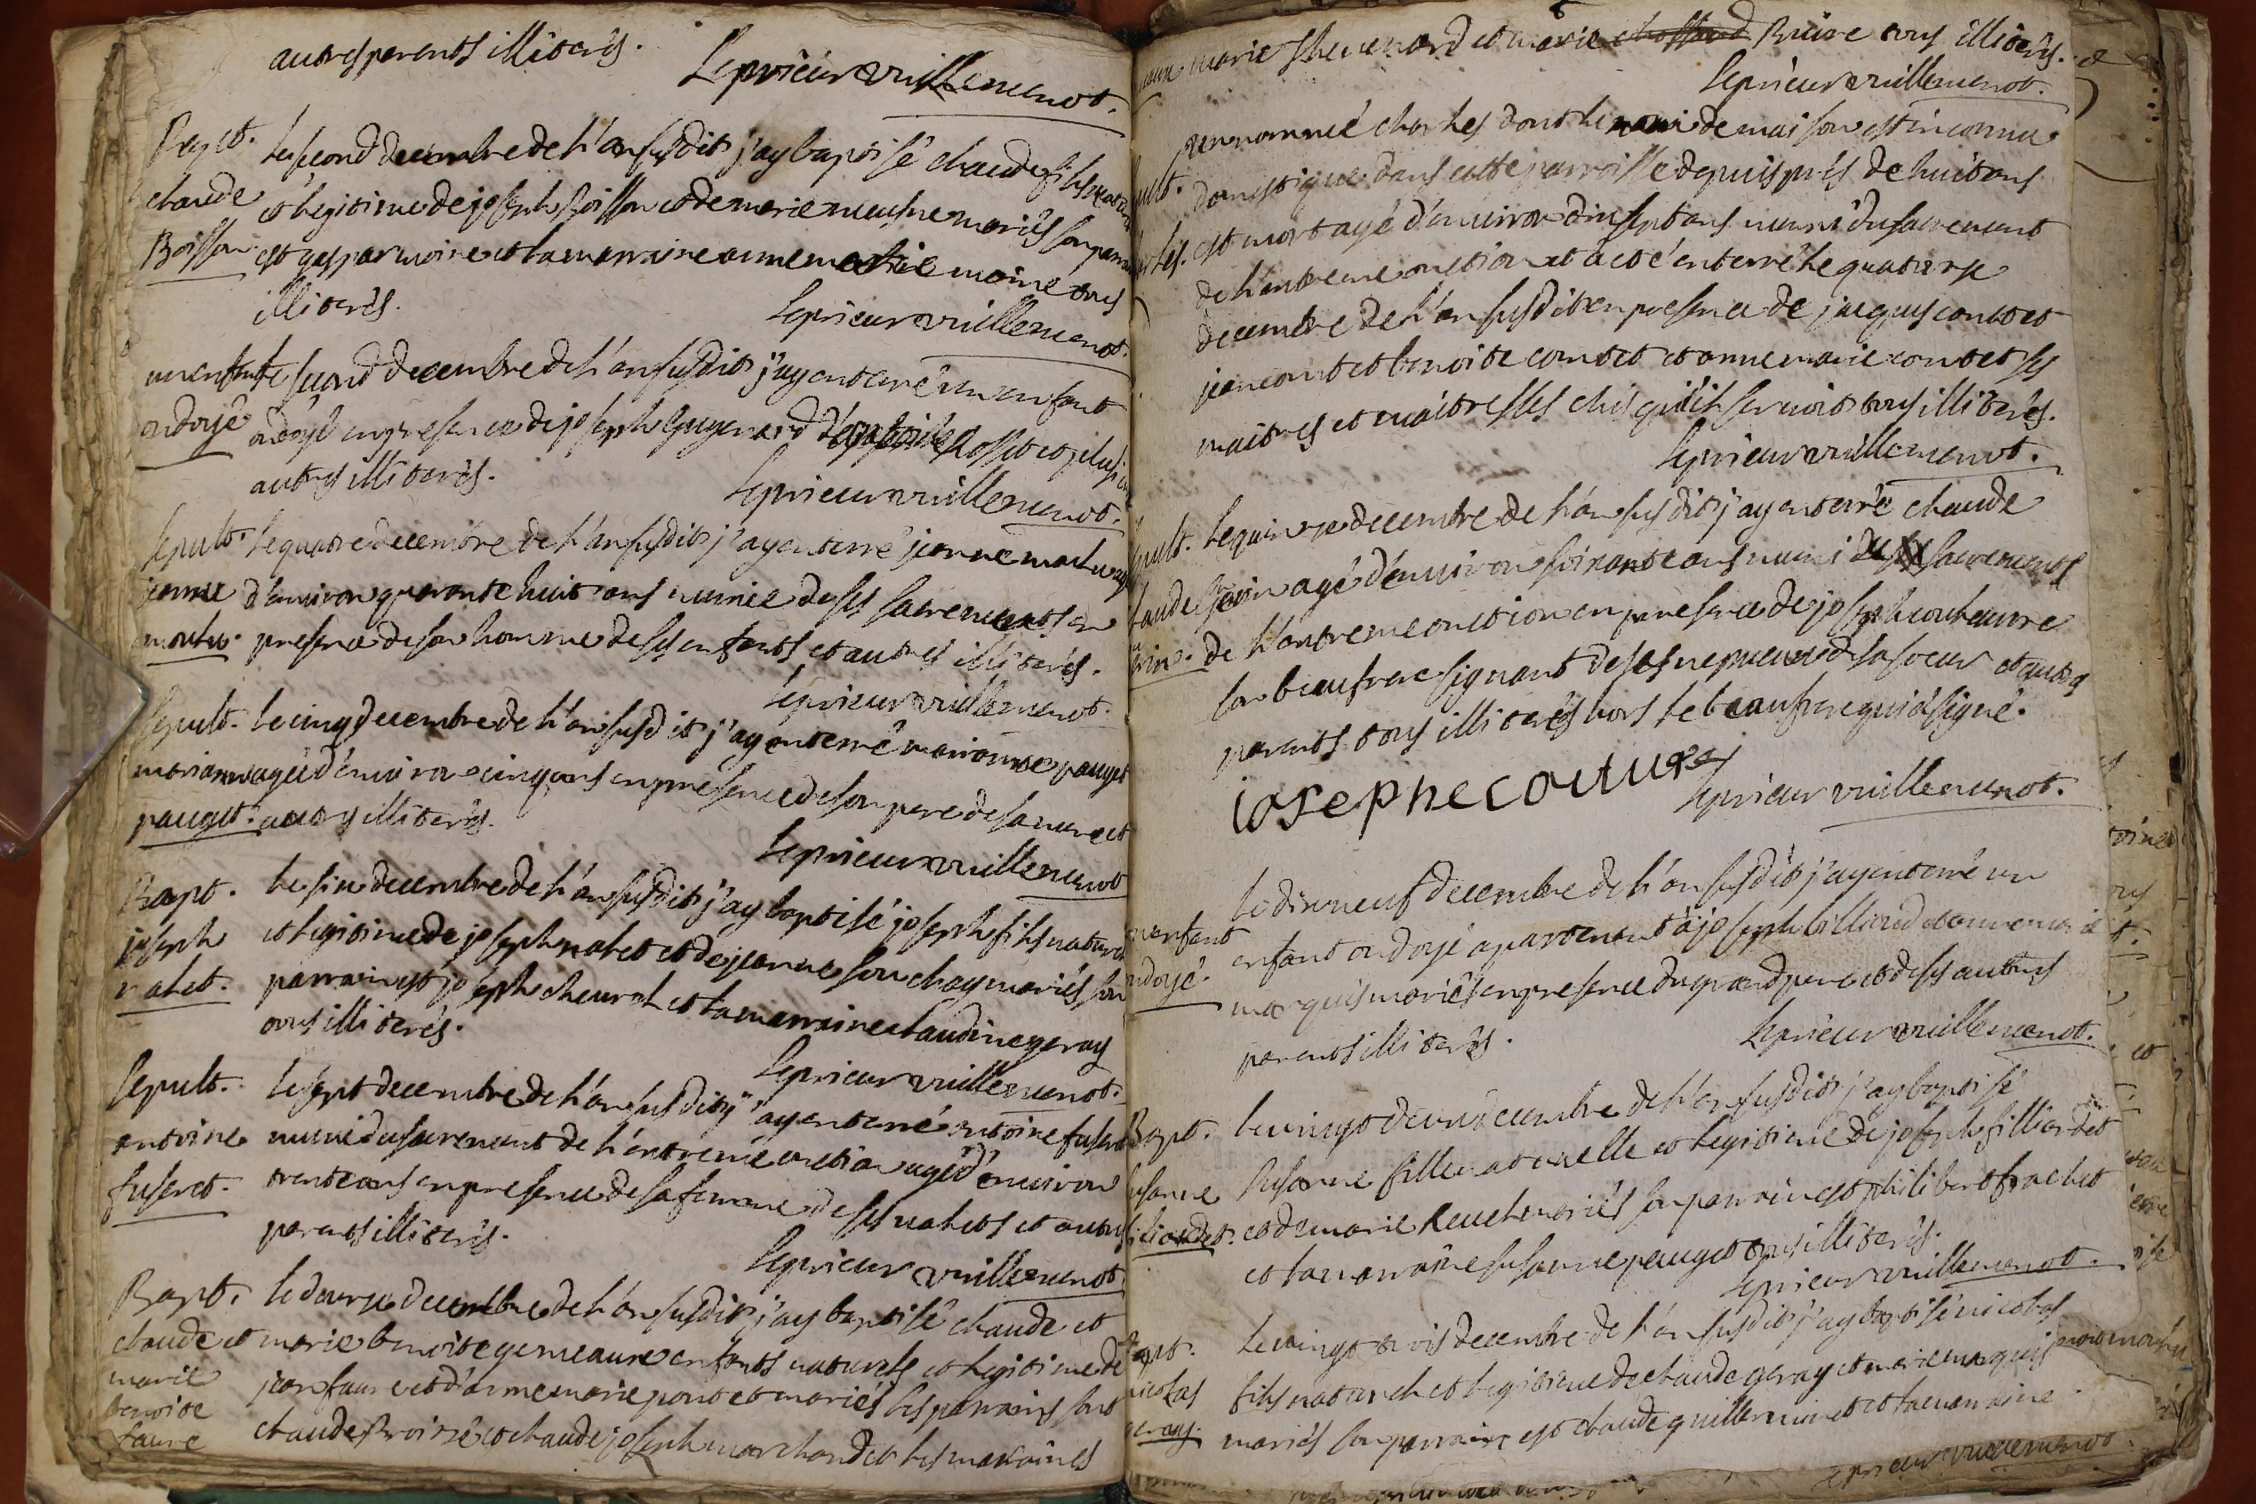 autres parents illiterés.
Le prieur vuillemenot.
Bapt. Le second decembre de l'an susdit j'ay baptisé claude fils naturel
claude et legitime de joseph Boisson et de marie meusne mariés son parrain
Boisson est gaspar moine et la marraine anne marie moine tous
illiterés.
Le prieur vuillemenot.
un enfant le second decembre de l'an susdit j'ay enterré un enfant
ondoyé ondoyé en presence de joseph guyenard rosset et plusieurs
autres illiterés.
Le prieur vuillemenot.
Sepult. le quatre decembre de l'an susdit j'ay enterré jeanne
jeanne d'environ quarante huit ans munie de ses sacrements en
presence de son homme de ses enfants et autres illiterés.
Le prieur vuillemenot.
Sepult. le cinq decembre de l'an susdit j'ay enterré marianne pauget
marianne agée d'environ cinq ans en presence de son pere de sa mere et
pauget. autres illiterés.
Le prieur vuillemenot
Bapt. le six decembre de l'an susdit j'ay baptisé joseph fils naturel
joseph et legitime de joseph nalet et de jeanne souchay mariés son
nalet. parrain est joseph cheurel et la marraine claudine geray
tous illiterés.
Le prieur vuillemenot.
Sepult. le sept decembre de l'an susdit j'ay enterré antoine fuseret
antoine muni du sacrement de l'extreme onction agé d'environ
fuseret. trente ans en presence de sa femme de ses valets et autres
parents illiterés.
Le prieur vuillemenot
Bapt. le douze decembre de l'an susdit j'ay baptisé claude et
claude et marie benoite gemeaux enfants naturels et legitime de
marie jean faure et d'anne marie pontet mariés les parrains sont
benoite claude Broissé et claude joseph marchand et les maraines
faure
marie thevenard et marie Briere tous illiterés.
Le prieur vuillemenot.
Sepult. un nommé charles dont le nom de maison est inconnu
domestique dans cette parroisse depuis près de huit ans
charles. est mort agé d'environ dix sept ans muni du sacrement
de l'extreme onction et a eté enterré le quatorze
decembre de l'an susdit en presence de jacques contet
jean contet benoite contet et anne marie contet ses
maitres et maitresses chés qui il servoit tous illiterés.
Le prieur vuillemenot.
Sepult. le quinze decembre de l'an susdit j'ay enterré claude
claude agé d'environ soixante ans muni des sacrements
de l'extreme onction en presence de joseph couteurre
son beaufrere signant de ses nepveux de sa soeur et autres
parents tous illiterés hors le beaufrere qui a signé.
iosephe couture
Le prieur vuillemenot.
le dixneuf decembre de l'an susdit j'ay enterré un
un enfant enfant ondoyé apartenant à joseph billiard et anne marie
ondoyé. marquis mariés en presence du grand pere et de ses autres
parents illiterés.
Le prieur vuillemenot.
Bapt. le vingt deux decembre de l'an susdit j'ay baptisé
susanne susanne fille naturelle et legitime de joseph filliardet
filliardet. et de marie Reuche mariés son parrain est philibert frachet
et la marraine susanne pauget tous illiterés.
Le prieur vuillemenot.
Bapt. le vingt trois decembre de l'an susdit j'ay baptisé nicolas
nicolas fils naturel et legitime de claude geray et marie marquis
geray. mariés son parrain est claude guilleminet et la marraine
Le prieur vuillemenot.